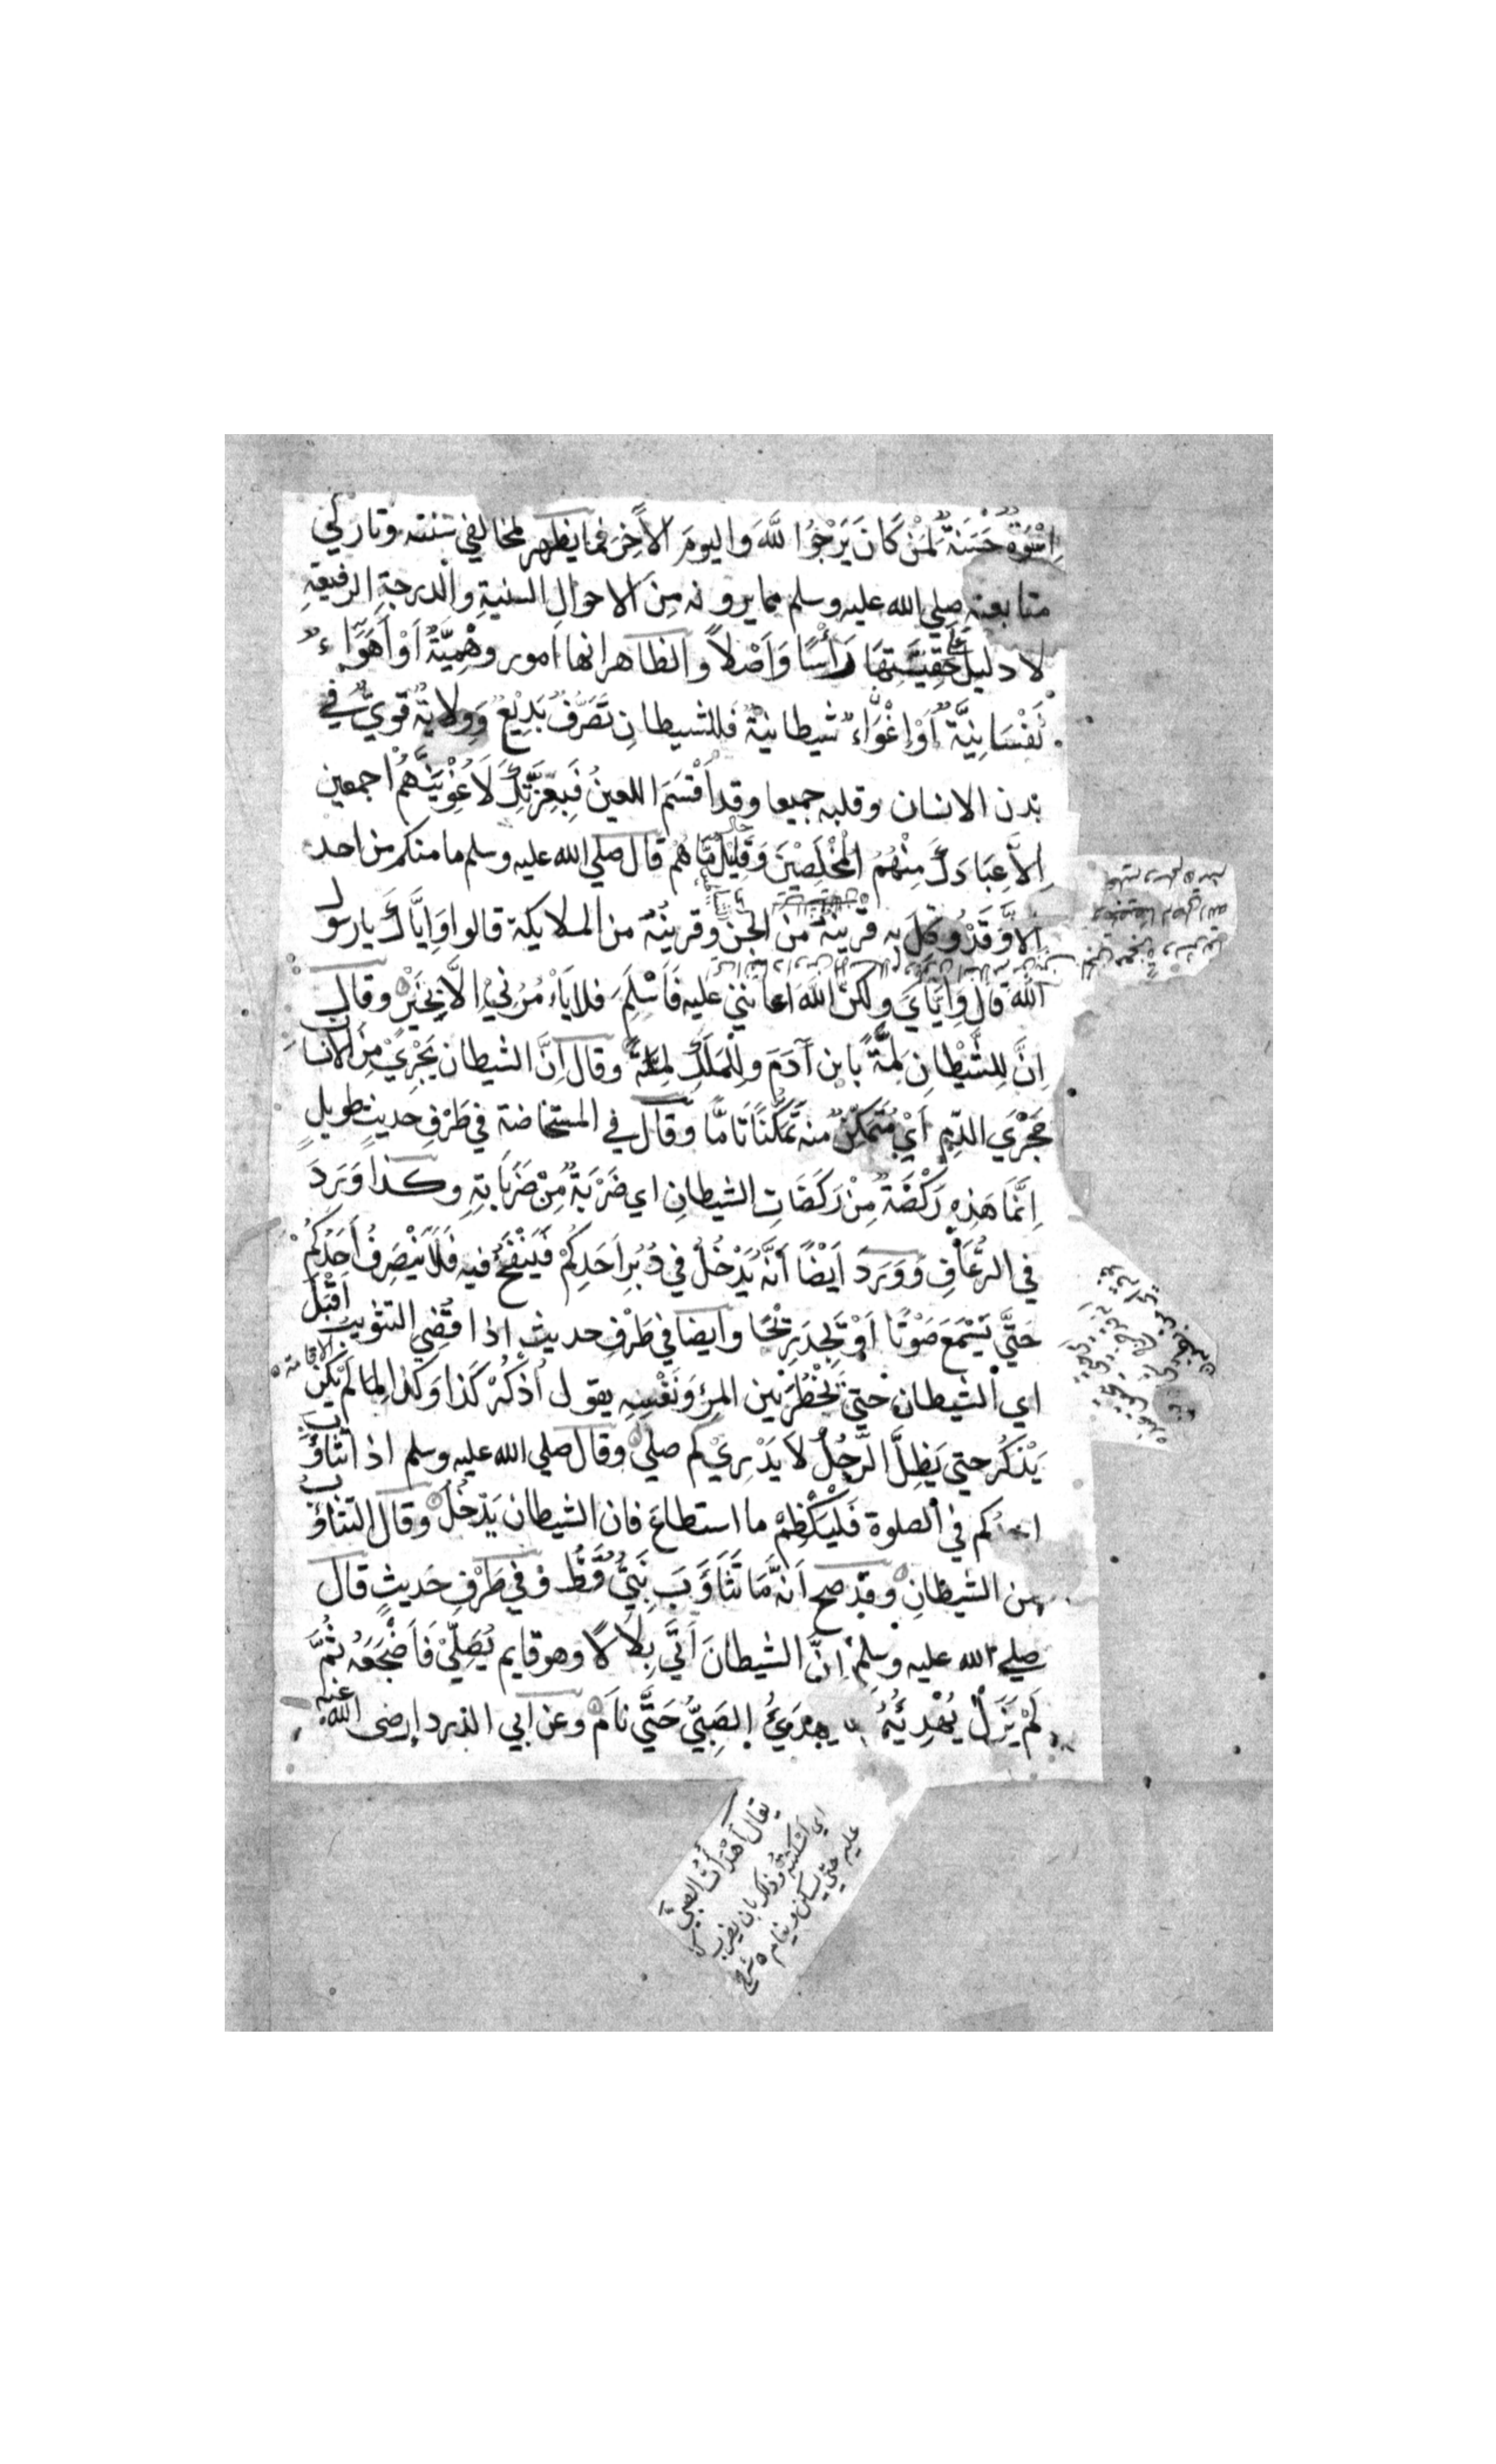 اِسْوَةٌ حَسَنَةٌ لِمَنْ كَانَ يَرْجُوا اللّٰهَ وَاليومَ الآخِرَ فما يظهر لمخالفي سنته وتاركي
متابعته صلي الله عليه وسلم مما يرونه مِنَ الاحوالِ السنيةِ والدرجةِ الرفيعةِ
لا دليلَ عَلَي حَقِيَّتِهَا رَأْسًا وَاَصْلاً والظاهر انها امور وهْمِيَّةٌ اَوْ اَهْوَاءٌ
نَفْسَانِيَّةٌ اَوْ اِغْوَاءٌ شيطانيةٌ فللشيطانِ تَصَرُّفٌ بَدِيْعٌ وَوِلايةٌ قويٌّ في
بدن الانسان وقلبه جميعا وقد اَقْسَمَ اللعينُ فَبِعِزَّتِكَ لَاُغْوِيَنَّهُمْ اجمعين
اِلاَّ عِبَادَكَ مِنْهُمُ الْمُخْلَصِيْنَ وَقَلِيْلٌ مَّا هُمْ قال صلي الله عليه وسلم ما منكم من احد
اِلاَّ وَقَدْ وُكِّلَ به قرينهُ من الجن وقرينُهُ من الملايكة قالوا وَاِيَّاكَ يا رسول
الله قال وَاِيَّايَ ولكنَّ اللّٰهَ اعانني عليه فَاَسْلَمَ فلا يَاْمُرُنِيْ اِلاَّ بِخَيْرٍ وقال
اِنَّ لِلشَّيْطَانِ لَمَّةً بابن آدَمَ وللْمَلَكِ لمةً وقال اِنَّ الشيطان يَجْرِيْ مِنَ الانسان
مَجْرَي الدَّمِ اَيْ مُتَمَكِّنٌ منه تَمَكُّنًا تَامًّا وقال في المستحاضة في طَرْفِ حديثٍ طويلٍ
اِنَّمَا هَذِهِ رَكْضَةٌ مِنْ رَكَضَاتِ الشيطانِ اي ضَرْبَةٌ مِنْ ضَرَبَاتِهِ وكذا وَرَدَ
في الرُّعَافِ وَوَرَدَ اَيْضًا اَنَّهُ يَدْخُلُ في دُبُرِ اَحَدِكُمْ فَيَنْفُخُ فيه فَلاَ يَنْصَرِفُ اَحَدُكُمْ
حَتَّي يَسْمَعَ صَوْتًا اَوْ يَجِدَ رِيْحًا وايضا في طَرْفِ حديثٍ اذا قُضِيَ التثويب اَقْبَلَ
الاقامة
اي الشيطان حتي يَخْطُرَ بين المرْءِ وَنَفْسِهِ يقول اُذْكُرْ كَذَا وَكَذَا لِمَا لَمْ يَكُنْ
يَذْكُرُ حتي يَظِلَّ الرَّجُلُ لاَ يَدْرِيْ كم صلي وقال صلي الله عليه وسلم اذا تثاؤب
احدكم في الصلوة فَلْيَكْظِمْ ما استطاعَ فان الشيطان يَدْخُلُ وقال التثاؤب
من الشيطانِ وقد صح اَنَّهُ مَا تَثَاؤَبَ نَبِيٌّ قَطُّ وفي طَرْفِ حَديثٍ قال
صلي الله عليه وسلم اِنَّ الشيطانَ اَتَي بِلاَلاً وهو قايم يُصَلِّيْ فَاَضْجَعَهُ ثُمَّ
لَمْ يَزَلْ يُهْدِئُهُ كما يهدئُ الصَّبِيُّ حَتَّي نَامَ وعن ابي الدرداء رضي الله عنه
يقال اَهْدَأْتُ الصبيَّ
اي اسكنته وذلك بان يضرب كفّ
عليه حتي يسكن وينام